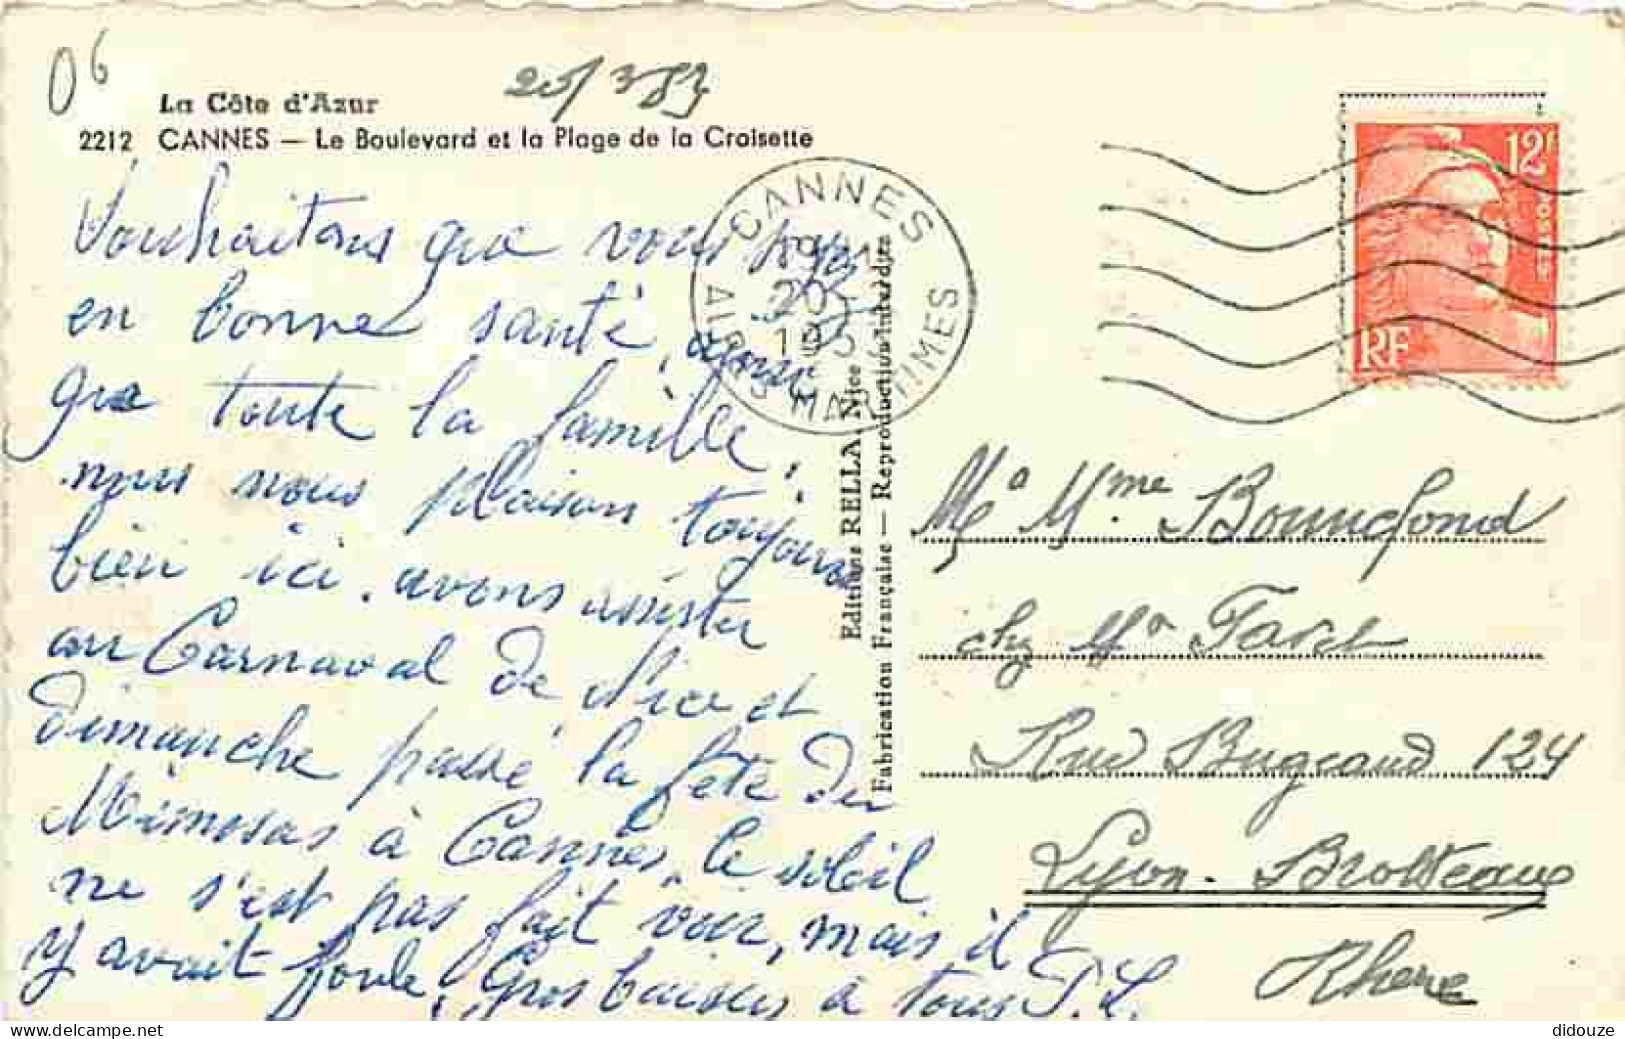 06
La Côte d'Azur
2212 CANNES — Le Boulevard et la Plage de la Croisette
CANNES
20
195
ALPES MARITIMES
12F
POSTES
RF
Souhaitons que vous soyez
en bonne santé, ainsi
que toute la famille,
nous nous plaisons toujours
bien ici. avons assister
au Carnaval de Nice et
dimanche passé la fête du
Mimosas à Cannes, le soleil
ne s'est pas fait voir, mais il
y avait foule, Gros baisers à tous P. L.
Editions RELLA, Nice
Fabrication Française — Reproduction Interdite
Mr Mme Bonnefond
chez Mr Faret
Rue Bugeaud 124
Lyon - Brotteaux
Rhône
didouze